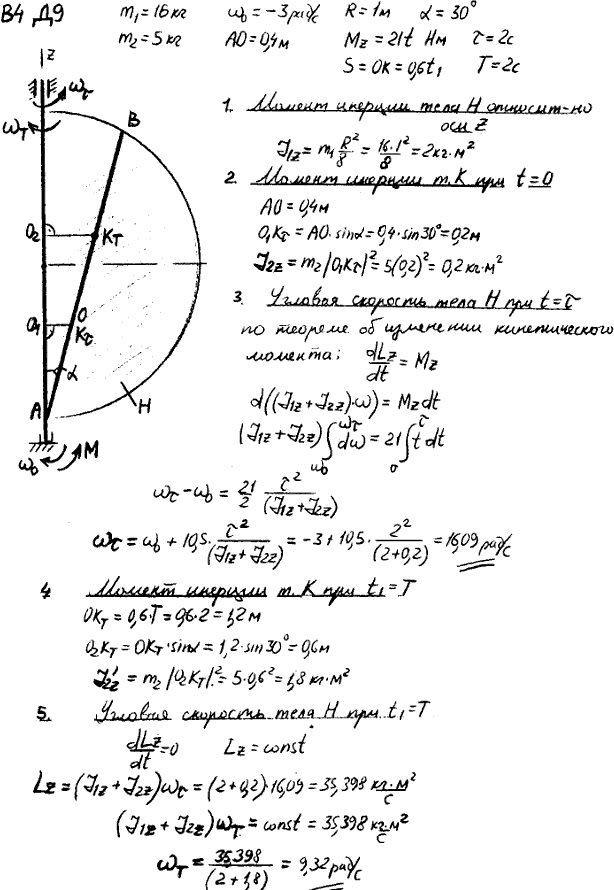 В4 Д9 m₁ = 16 кг ω₀ = −3 рад/с R = 1м α = 30°
m₂ = 5 кг AO = 0,4м M_z = 21t Нм τ = 2с
S = OK = 0,6t₁ T = 2с
z
ω_τ
ω_T
B
O₂
K_T
O₁
O
K_τ
α
H
A
ω₀
M
1. Момент инерции тела H относит-но
оси Z
J₁z = m₁ R²/8 = 16·1²/8 = 2кг·м²
2. Момент инерции т.К при t=0
AO = 0,4м
O₁K_τ = AO·sinα = 0,4·sin30° = 0,2м
J₂z = m₂|O₁K_τ|² = 5(0,2)² = 0,2 кг·м²
3. Угловая скорость тела H при t=τ
по теореме об изменении кинетического
момента: dLz/dt = Mz
d((J₁z + J₂z)·ω) = Mz dt
(J₁z + J₂z) ∫_ω₀^ω_τ dω = 21 ∫_0^τ t dt
ω_τ − ω₀ = 21/2 τ²/(J₁z + J₂z)
ω_τ = ω₀ + 10,5· τ²/(J₁z + J₂z) = −3 + 10,5· 2²/(2+0,2) = 16,09 рад/с
4 Момент инерции т. К при t₁=T
OK_T = 0,6·T = 0,6·2 = 1,2 м
O₂K_T = OK_T·sinα = 1,2·sin30° = 0,6м
J₂z' = m₂|O₂K_T|² = 5·0,6² = 1,8 кг·м²
5. Угловая скорость тела H при t₁=T
dLz/dt = 0 Lz = const
Lz = (J₁z + J₂z)ω_τ = (2+0,2)·16,09 = 35,398 кг·м²/с
(J₁z + J₂z)ω_T = const = 35,398 кг·м²/с
ω_T = 35,398/(2+1,8) = 9,32 рад/с